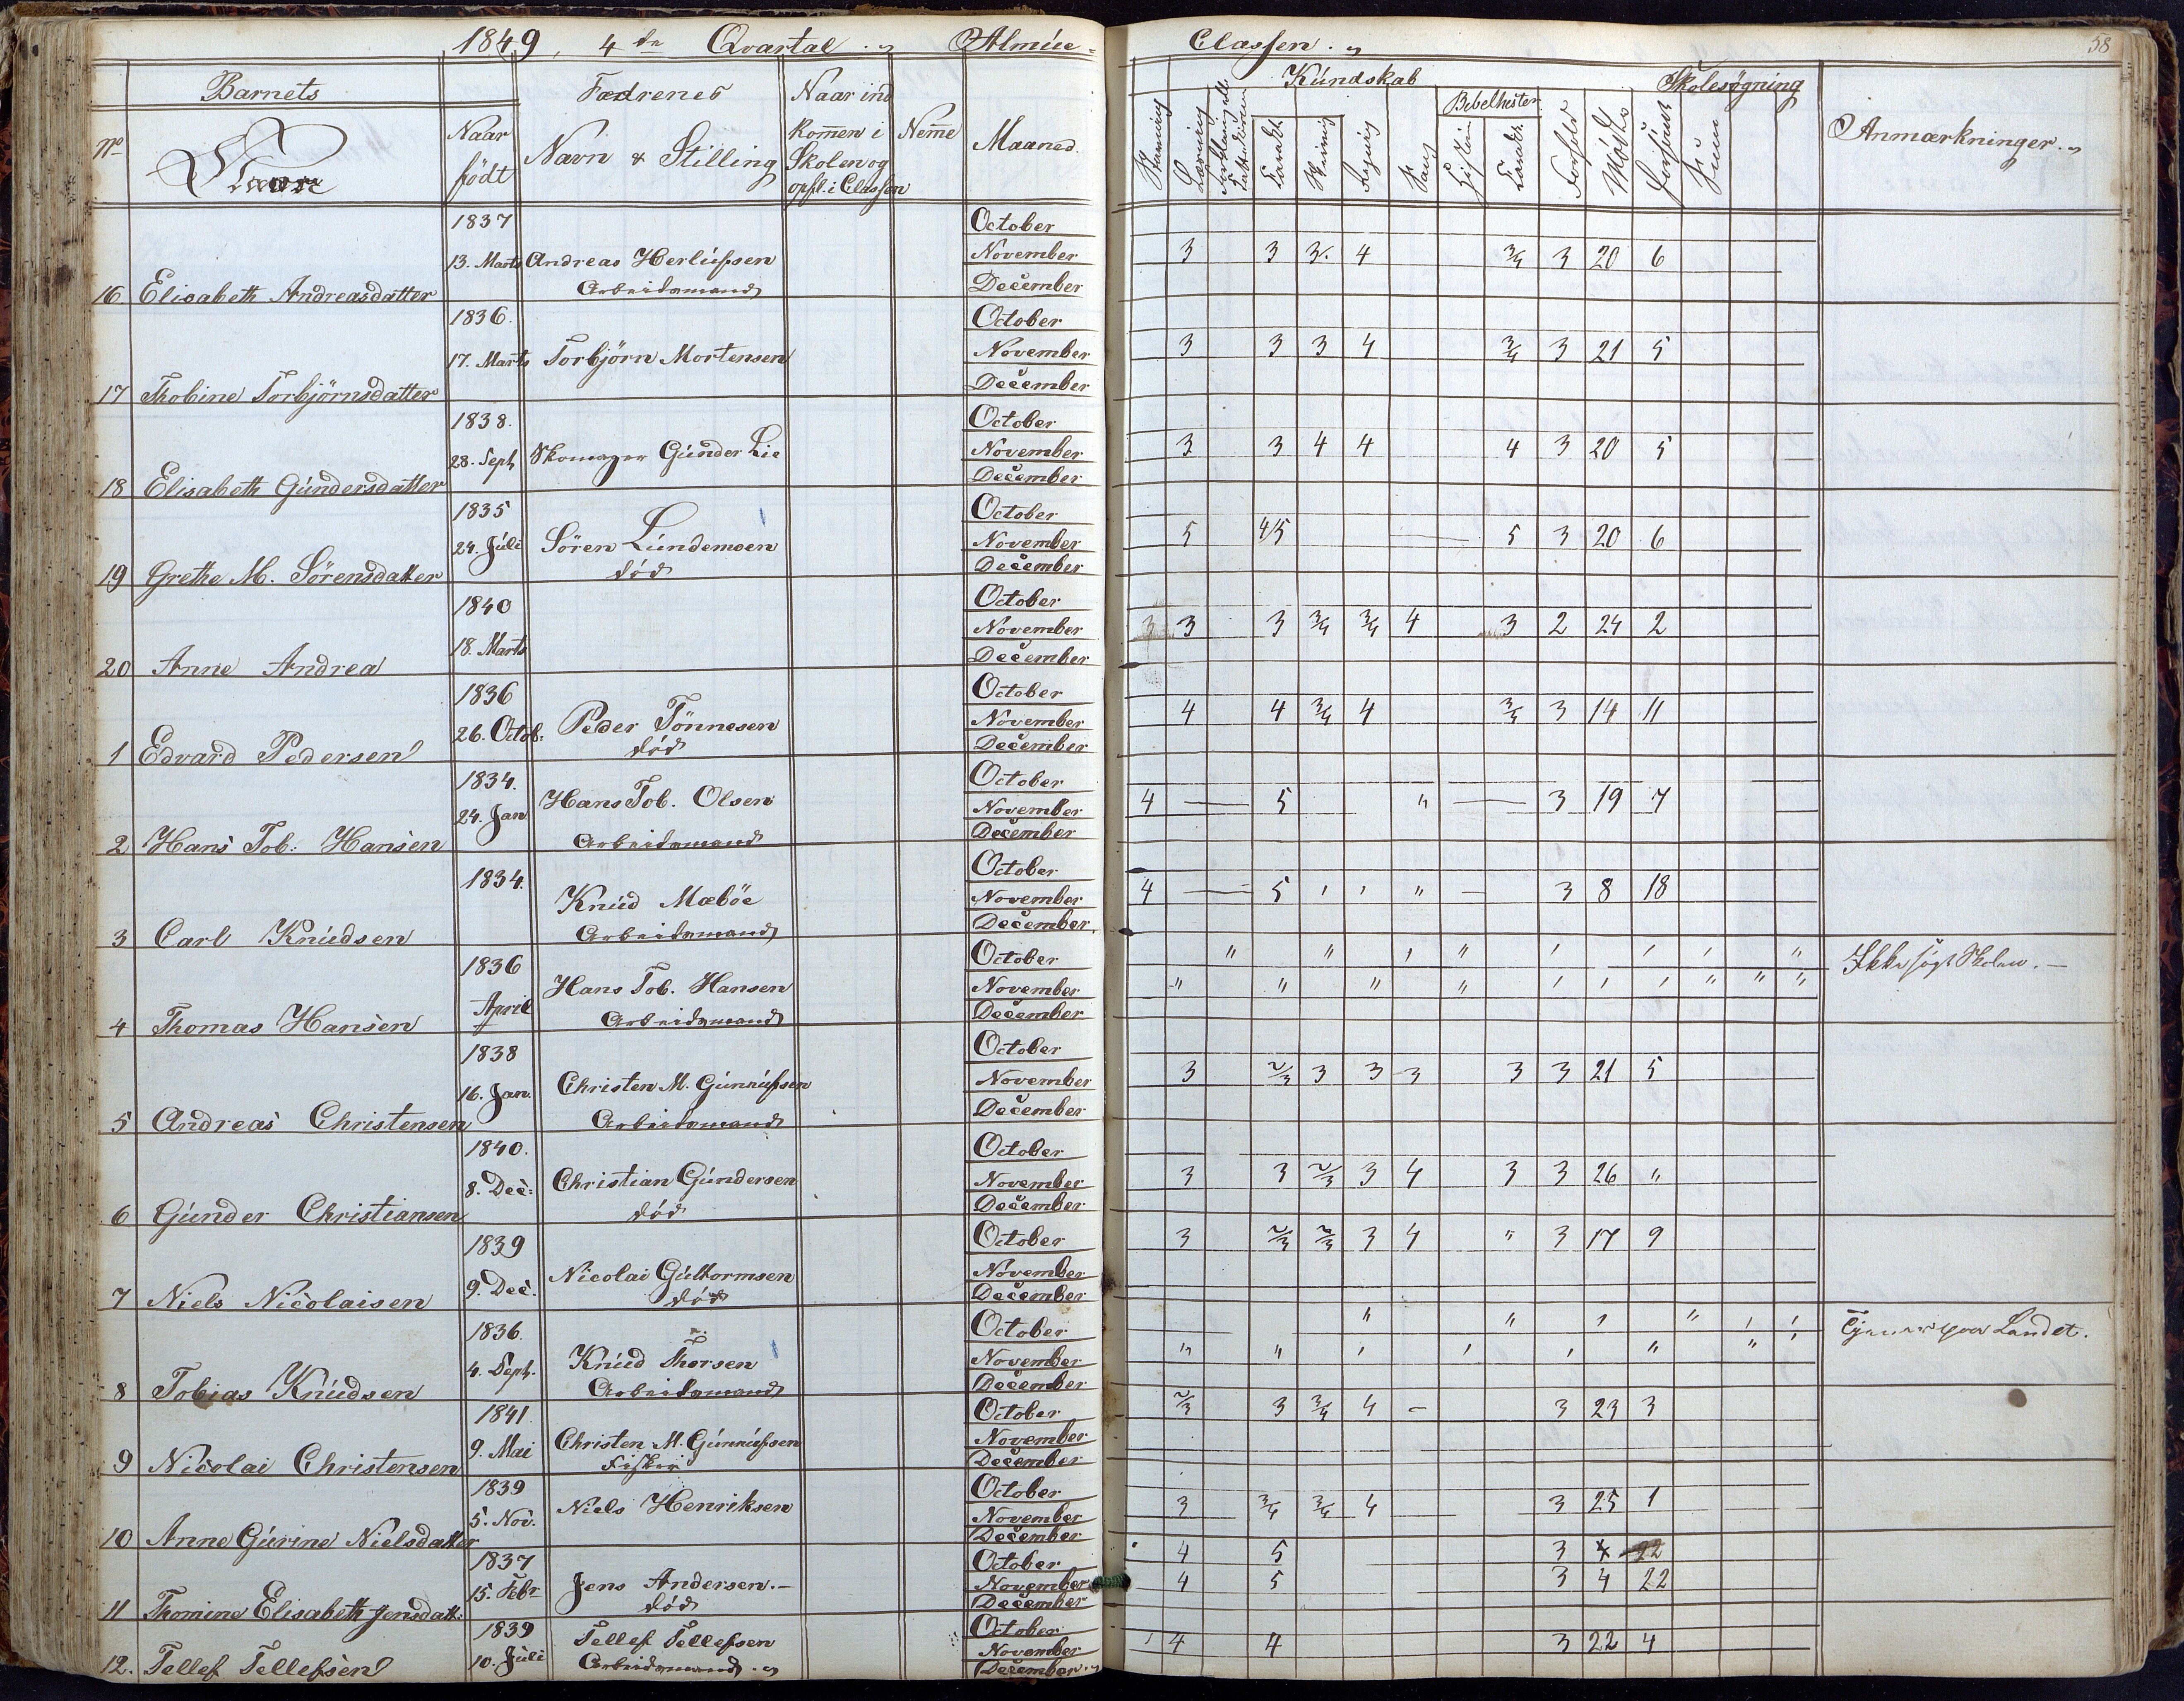 1849, 4de Qvartal. Almue= Classen.
58
Barnets Fædrenes Naar ind Kundskab Skolesøgning
No Navn Naar født Navn & Stilling kommen i Skolen og opfl. i Classen Nemme Maaned. Stavning Læsning Skrivning Regning Sang Bibelhistor. Forhold Mødt Forsømt Anmærkninger.
1837 October
13. Marts Andreas Herlufsen November 3 3 3. 4 3/4 3 20 6
16 Elisabeth Andreasdatter Arbeidsmand December
1836. October
17. Marts Torbjørn Mortensen November 3 3 3 4 3/4 3 21 5
17 Thobine Torbjørnsdatter December
1838. October
28. Sept Skomager Gunder Lie November 3 3 4 4 4 3 20 5
18 Elisabeth Gundersdatter December
1835 October
24. Juli Søren Lundemoen November 5 4/5 5 3 20 6
19 Grethe M. Sørensdatter død December
1840 October
18. Marts November 3 3 3 3/4 3/4 4 3 2 24 2
20 Anne Andrea December
1836 October
26. Octob: Peder Tønnesen November 4 4 3/4 4 3/4 3 14 11
1 Edvard Pedersen død December
1834. October
24. Jan Hans Tob. Olsen November 4 — 5 " — 3 19 7
2 Hans Tob: Hansen Arbeidsmand December
1834. October
Knud Mæbøe November 4 — 5 ' ' " — 3 8 18
3 Carl Knudsen Arbeidsmand December.
1836 October " " ' " ' ' ' " Ikke søgt Skolen. —
April Hans Tob. Hansen November " " " " ' ' ' " " "
4 Thomas Hansen Arbeidsmand December
1838 October
16. Jan. Christen M. Gunnufsen November 3 2/3 3 3 3 3 3 21 5
5 Andreas Christensen Arbeidsmand December
1840. October
8. Dec: Christian Gundersen November 3 3 2/3 3 4 3 3 26 "
6 Gunder Christiansen død December
1839 October 3 2/3 2/3 3 4 " 3 17 9
9. Dec. Nicolai Guttormsen November
7 Niels Nicolaisen død December
1836. October " " ' " ' ' Tjener paa Landet.
4. Sept. Knud Thorsen November " " ' ' ' " " '
8 Tobias Knudsen Arbeidsmand December
1841. October 2/3 3 3/4 4 - 3 23 3
9. Mai Christen M. Gunnufsen November
9 Nicolai Christensen Fisker December
1839 October
5. Nov. Niels Henriksen November 3 3/4 3/4 4 3 25 1
10 Anne Gurine Nielsdatter December
1837 October 4 5 3 4 22
15. Febr Jens Andersen.— November 4 5 3 4 22
11 Thomine Elisabeth Jensdatt: død December
1839 October
10. Juli Tellef Tellefsen November 4 4 3 22 4
12. Tellef Tellefsen Arbeidsmand. December.